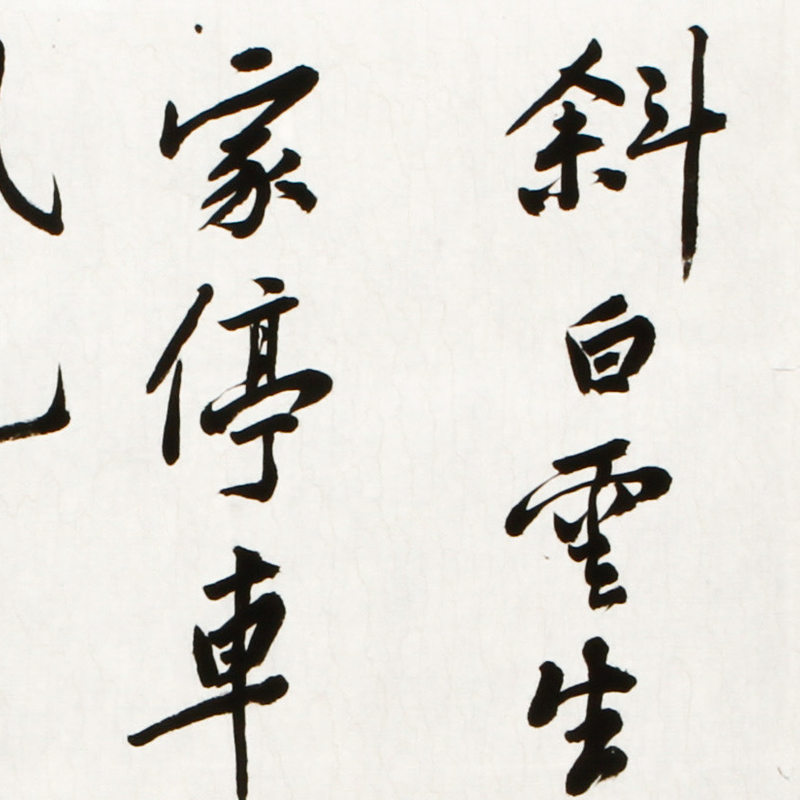 斜白雲生
家停車